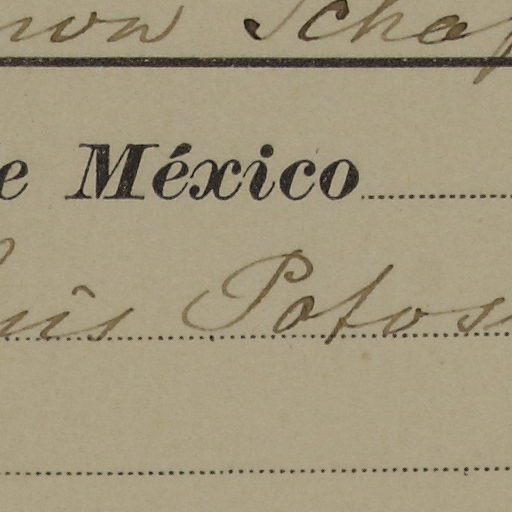 mon Schap
de México
Luis Potosi